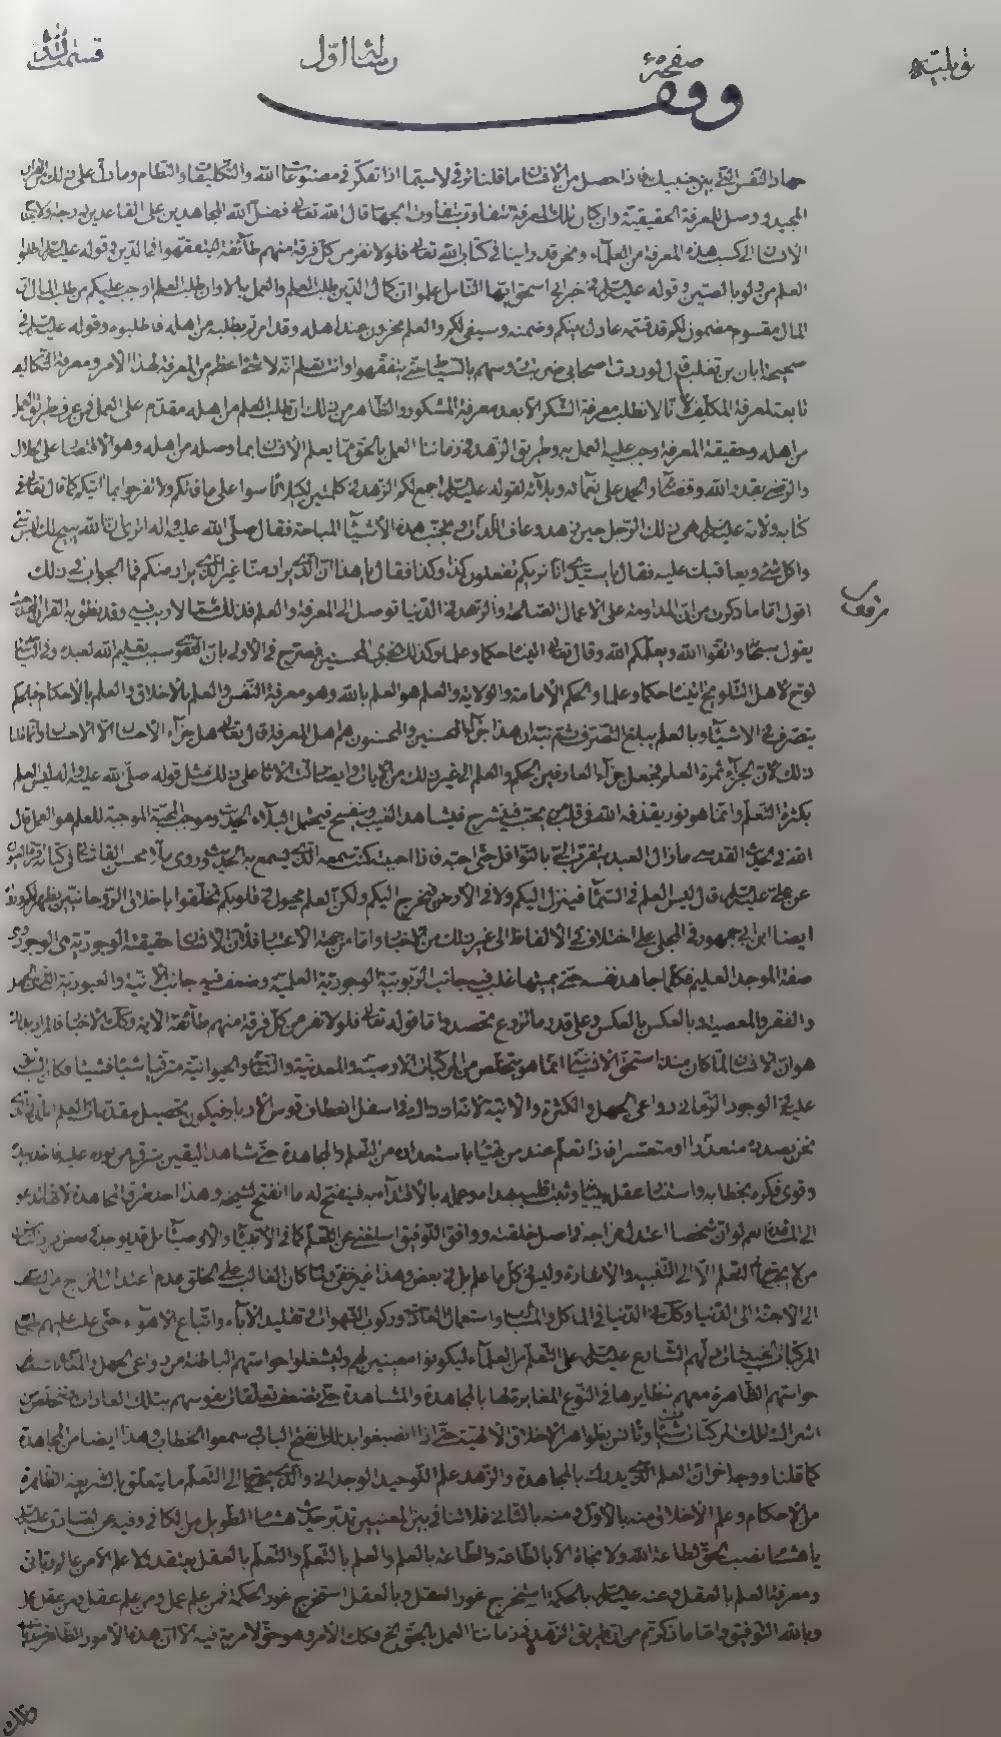 صفحهٔ
رسالهٔ اول
وقف
جهاد النفس التي بين جنبيك فاذا حصل من الانسان ما قلنا ترقى لا سيما اذا تفكّر في مصنوعات الله والتكليفات والنظام وما دلّ على ذلك من القران
المجيد ووصل للمعرفة الحقيقيّة وان كان تلك المعرفة تتفاوت بتفاوت الجهات قال الله تعالى فضّل الله المجاهدين على القاعدين درجة ولا بدّ
الانسان الى كسب هذه المعرفة من العلماء ونحن قد راينا في كتاب الله تعالى فلولا نفر من كل فرقة منهم طائفة ليتفقهوا في الدين وقوله عليه السلام اطلبوا
العلم ولو بالصين وقوله عليه السلام في خبر ابي اسحق ايها الناس اعلموا ان كمال الدين طلب العلم والعمل به الا وان طلب العلم اوجب عليكم من طلب المال ان
المال مقسوم مضمون لكم قد قسّمه عادل بينكم وضمنه وسيفي لكم والعلم مخزون عند اهله وقد امرتم بطلبه من اهله فاطلبوه وقوله عليه السلام في
صحيحة ابان بن تغلب قال لوددت اصحابي ضربت رؤسهم بالسياط حتى يتفقهوا وانت تعلم انه لا شئ اعظم من المعرفة لهذا الامر ومعرفة التكاليف
تابعة لمعرفة المكلّف لانا لا نطلب معرفة الشكر الا بعد معرفة المشكور والظاهر من ذلك ان طلب العلم من اهله مقدّم على العمل فمن عرف طريق العمل
من اهله وحقيقة المعرفة وجب عليه العمل به وطريق الزهد في زماننا العمل بالحق مما يعلم الانسان بما وصله من اهله وهو الاقتصار على الحلال
والرضى بقدر الله وقضائه والحمد على نعمائه وبلائه لقوله عليه السلام اجمع لكم الزهد في كلمتين لكيلا تأسوا على ما فاتكم ولا تفرحوا بما اتيكم كما قال تعالى في
كتابه ولانه عليه السلام نهى ذلك الرجل حين زهد وعاف اللذات وتجنّب هذه الاشياء المباحة فقال صلّى الله عليه واله اترى ان الله يبيح لك لبس شئ
واكل شئ ويعاقبك عليه فقال يا سيدي انا نريكم تفعلون كذا وكذا فقال يا هذا ان الذي يراد منا غير الذي يراد منكم فما الجواب في ذلك
اقول اما ما ذكرت من ان المداومة على الاعمال الصالحة والزهد في الدنيا توصل الى المعرفة والعلم فذلك مما لا ريب فيه وقد نطق به القران الحديث
يقول سبحانه واتقوا الله ويعلّمكم الله وقال تعالى اتيناه حكما وعلما وكذلك نجزي المحسنين فصرّح في الاولى بان التقوى سبب تعليم الله لعبده وفي الثانية
لوّح لاهل التلويح اتيناه حكما وعلما والحكم الامامة والولاية والعلم هو العلم بالله وهو معرفة النفس والعلم بالاخلاق والعلم بالاحكام فبالحكم
يتصرف في الاشياء وبالعلم يبلغ التصرف ثم نبّه ان هذا جزاء المحسنين والمحسنون هم اهل المعرفة قال تعالى هل جزاء الاحسان الا الاحسان وانما قلنا
ذلك لان الجزاء ثمرة العلم فجعل جزاء العارفين الحكم والعلم الى غير ذلك من الايات وايضا دلت الاثار على ذلك مثل قوله صلّى الله عليه واله ليس العلم
بكثرة التعلّم وانما هو نور يقذفه الله في قلب من يحب فينشرح فيشاهد الغيب وينفسح فيحتمل البلاء الحديث وموجب المحبة الموجبة للعلم هو العمل قال
الله في الحديث القدسي ما زال العبد يتقرب الي بالنوافل حتى احبّه فاذا احببته كنت سمعه الذي يسمع به الحديث وروى ملا محسن القاشاني في كتابه قرة العيون
عن علي عليه السلام قال ليس العلم في السماء فينزل اليكم ولا في الارض فيخرج اليكم ولكن العلم مجبول في قلوبكم تخلّقوا باخلاق الروحانيين يظهر لكم ورواه
ايضا ابن ابي جمهور في المجلي على اختلاف في الالفاظ الى غير ذلك من الاخبار واما من جهة الاعتبار فلان الانسان حقيقته الوجودية هي الوجود وهي
صفة الموجد العليم فكلّما جاهد نفسه حتى يميتها غلب فيه جانب الربوبية الوجودية العلمية وضعف فيه جانب الانية والعبودية التي هي الجهل
والفقر والمعصية وبالعكس بالعكس وعلى قدر ما تزرع تحصد واما قوله تعالى فلولا نفر من كل فرقة منهم طائفة الاية وكذلك الاخبار فالمراد بها
هو ان الانسان لما كان مبدأ استحق الانسانية انما هو يتخلّص من المركبات الارضية والمعدنية والنباتية والحيوانية مترقيا شيئا فشيئا فكان الغالب
عليه في الوجود الزماني دواعي الجهل والكثرة والانية
نحن بصدده متعذّرا او متعسّرا فاذا تعلّم عند من تهيّأ باستعداده من التعلّم والمجاهدة حتى شاهد اليقين
وقوي فكره بخطابه واستنار عقله
الى المقصد نعم لو ان شخصا اعتدل مزاجه في اصل خلقته ووافق التوفيق استغنى عن التعلّم كما في الانبياء والاوصياء بل قد يوجد في بعض
من لا يحتاج الى التعلّم الا الى التنبيه والاشارة وليس في كل ما علم بل في بعض وهذا غير خفي ولما كان الغالب على الخلق عدم اعتدال المزاج
الى الاحنة الى الدنيا وكل في الدنيا في الماكل والمشارب واستعمال العادة وركوب الشهوات وتقليد الاباء واتباع الاهواء حتى غلب عليهم طبايع
المركبات فحثّهم الشارع عليه السلام على التعلّم من العلماء ليكونوا معينين لهم وليشغلوا حواسهم الباطنة من دواعي الجهل
حواسهم الظاهرة معهم نظايرها في النوع المغايرة لها بالمجاهدة والمشاهدة حتى يضعف تعلّقات نفوسهم بتلك العادات ويتخلّص من
اشراك تلك المركبات شيئا وتانس بظواهر الاخلاق الالهية حتى اذا انصبغوا بذلك انفتح الباب وسمعوا الخطاب وهذا ايضا من المجاهدة
كما قلنا ووجه اخر ان العلم الذي يدرك بالمجاهدة والزهد علم التوحيد الوجداني والذي يحتاج الى التعلّم ما يتعلّق بالشريعة الظاهرة
من الاحكام وعلم الاخلاق منه بالاول ومنه بالثاني فلا تنافي بين المعنيين تدبّر حديث هشام الطويل من الكافي وفيه عن الصادق عليه السلام
يا هشام نصب الحق لطاعة الله ولا نجاة الا بالطاعة والطاعة بالعلم والعلم بالتعلّم والتعلّم بالعقل يعتقد ولا علم الا من عالم رباني
ومعرفة العلم بالعقل وعنه عليه السلام بالحكمة استخرج غور العقل وبالعقل استخرج غور الحكمة فمن علم عمل ومن علم عقل ومن عقل علم
وبالله التوفيق واما ما ذكرتم من ان طريق الزهد في زماننا العمل بالحق الخ فذلك الامر وهو حق لا مرية فيه الا ان هذه الامور الظاهرة